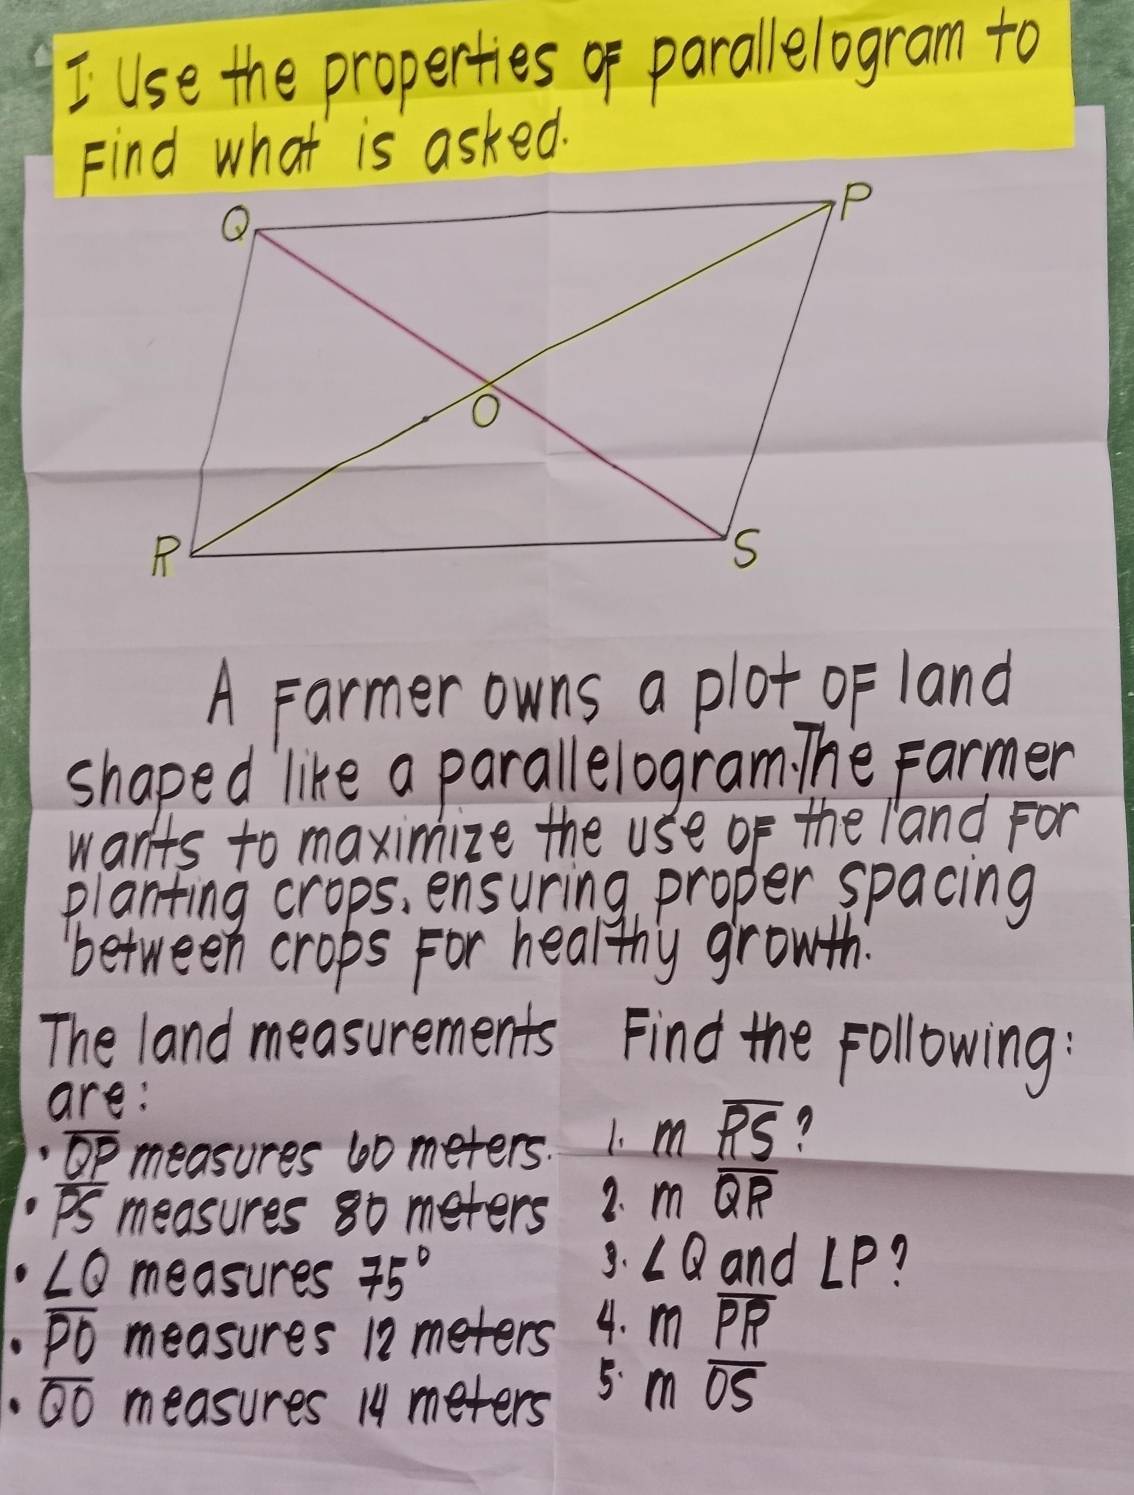 I. Use the properties of parallelogram to
Find what is asked.
Q
P
O
R
S
A Farmer owns a plot of land
shaped like a parallelogram. The Farmer
wants to maximize the use of the land For
planting crops, ensuring proper spacing
between crops For healthy growth.
The land measurements
are:
• QP measures 60 meters.
• PS measures 80 meters
• ∠Q measures 75°
• PO measures 12 meters
• QO measures 14 meters
Find the Following:
1. m RS?
2. m QR
3. ∠Q and ∠P?
4. m PR
5. m OS